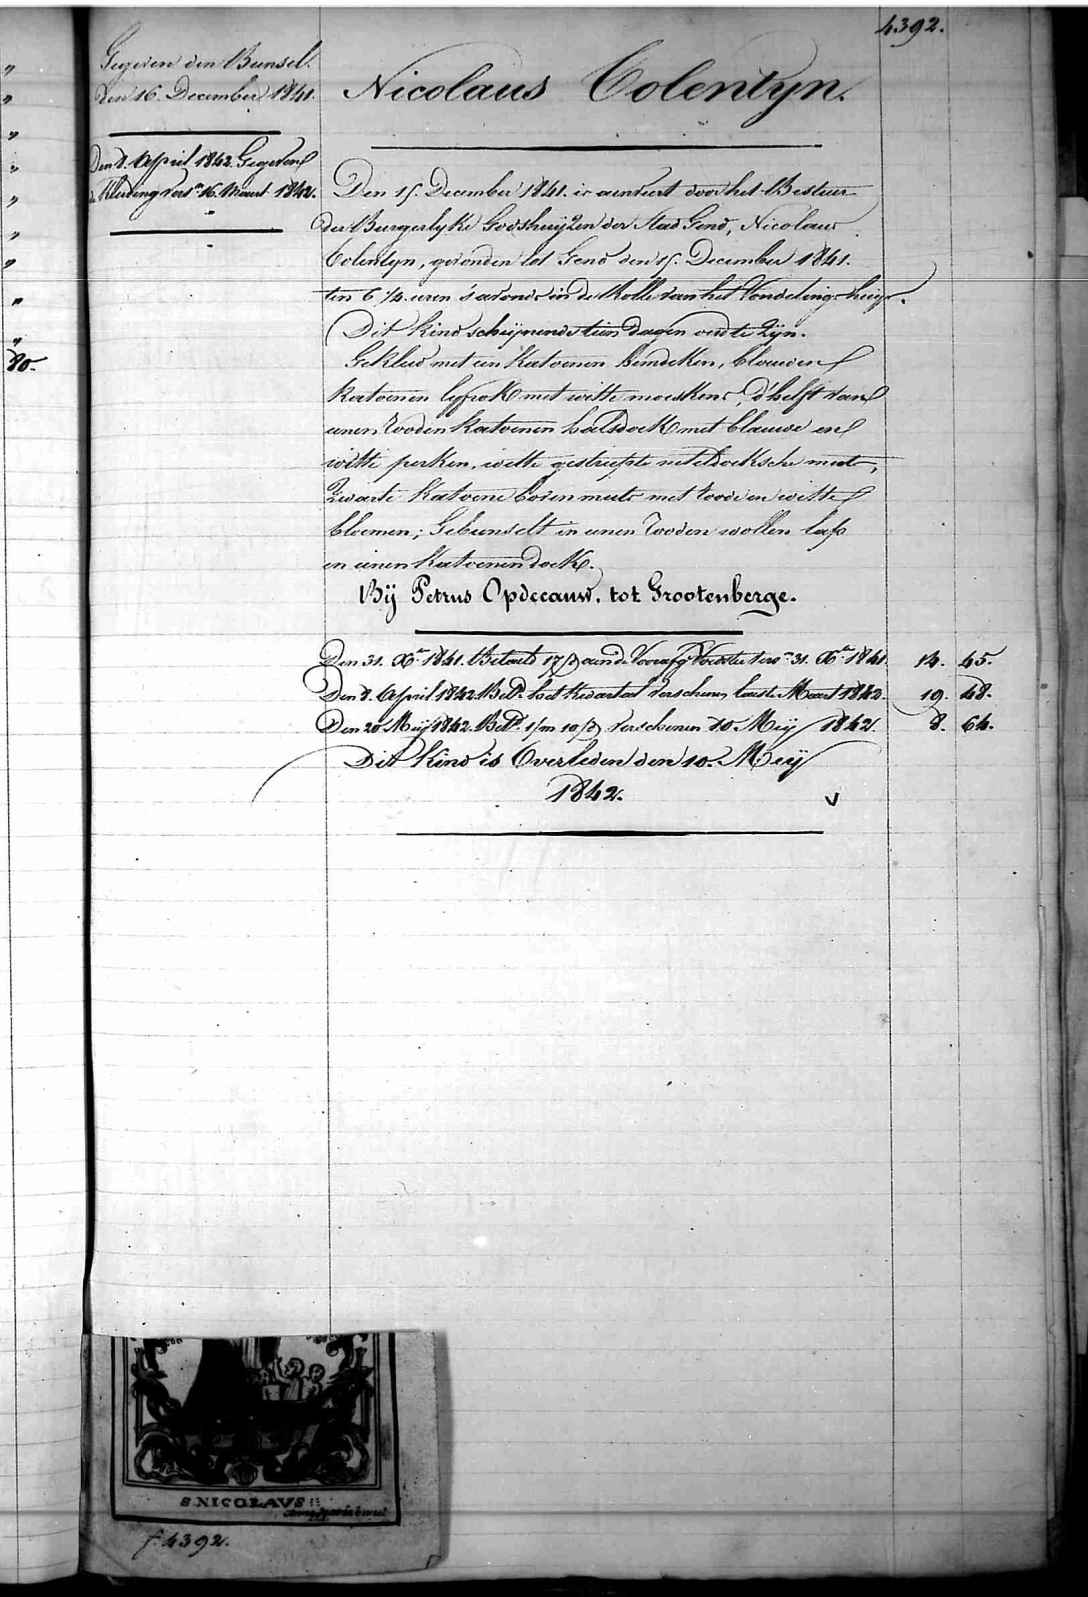 4392.
Gegeven den Bunsel.
den 16. December 1841.
Den 8. April 1842. Gegeven
de Kleeding vers.n 16. Maart 1842.
Nicolaus Colentyn.
Den 15. December 1841. is aenveert door het Bestuur
der Burgerlyke Godshuijzen der Stad Gend, Nicolaus
Colentyn, gevonden tot Gend den 15. December 1841.
ten 6 1/4 uren 's avonds in de Rolle van het Vondelings-huijs.
Dit kind schijnende tien dagen oud te zijn.
Gekleed met een katoenen hemdeken, blauwen
katoenen lyfrok met witte moeskens, d'helft van
eenen rooden katoenen halsdoek met blauwe en
witte perken, witte gestreepte neteldoeksche muts,
zwarte katoene boven muts met roode en witte
bloemen; Gebunselt in eenen rooden wollen lap
en eenen katoenen doek.
Bij Petrus Opdecauw. tot Grootenberge.
Den 31. Xr. 1841. Betaelt 17/ aen de Voedster vers.n 31. Xr. 1841. 14. 45.
Den 8. April 1842. Bet.d het Kwartael verschenen laeste Maart 1842. 19. 48.
Den 20 Meij 1842. Bet.d 1/m 10/ verschenen 10 Meij 1842. 8. 64.
Dit kind is Overleden den 10. Meij
1842. v
80.
S NICOLAVS
f. 4392.